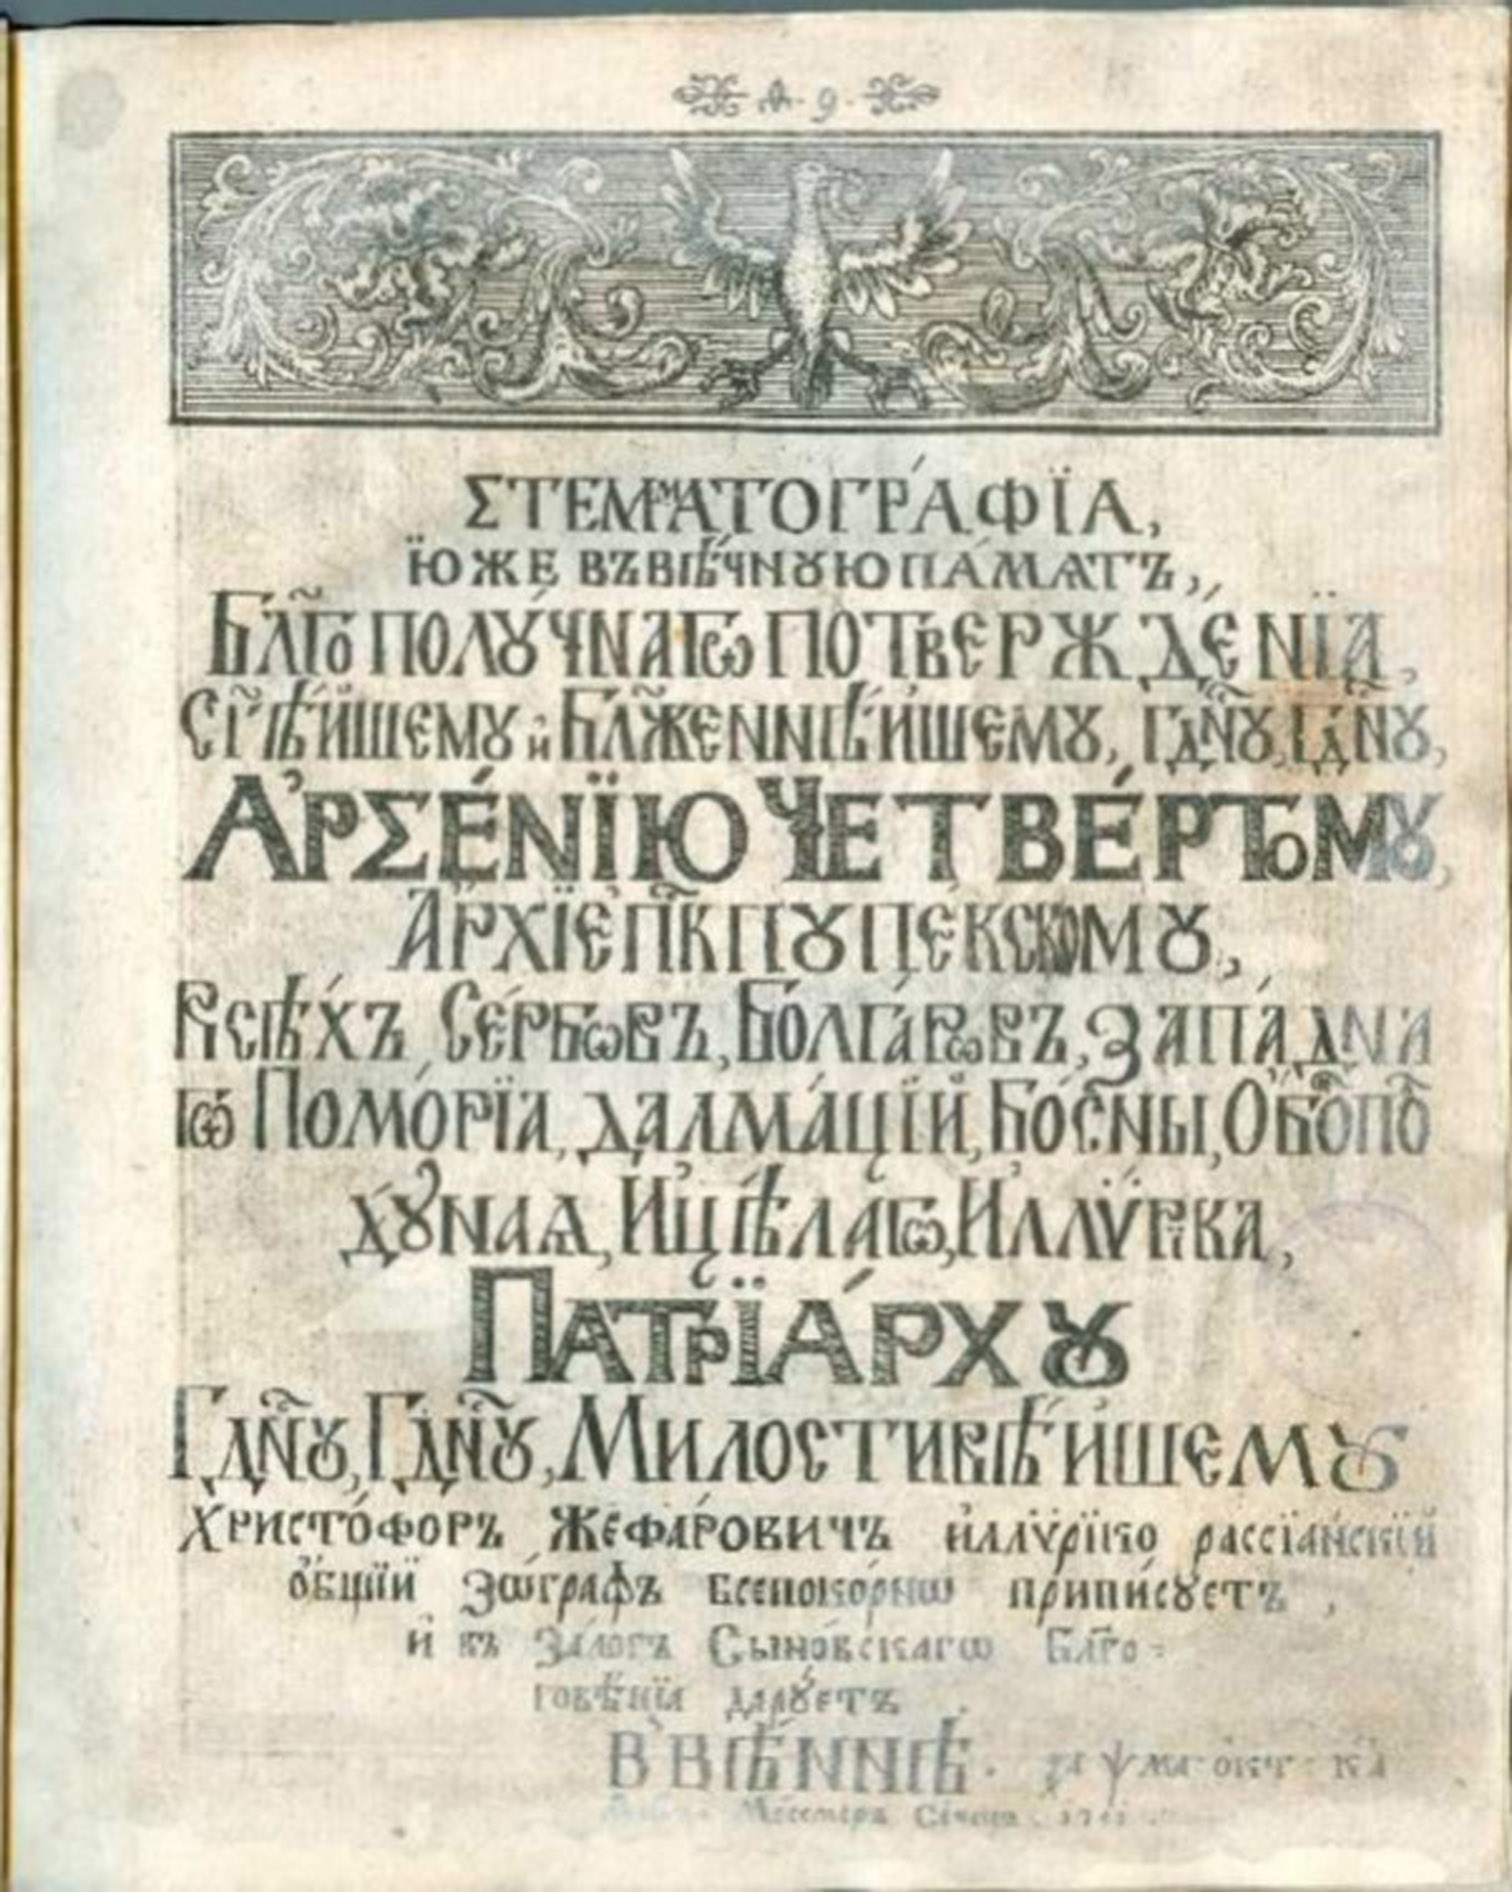 ΣТЕММАТОГРА́ФЇА,
Ї́ЮЖЕ ВЪ ВѢ́ЧНꙊЮ ПА́МѦТЪ,
БЛ҃ГОПОЛꙊ́ЧНАГѠ ПОТВЕРЖДЕ́НЇА,
СТ҃ѢЙШЕМꙊ и҆ БЛ҃ЖЕННѢ́ЙШЕМꙊ, ГДⷭ҇НꙊ, ГДⷭ҇НꙊ,
А҆РΣЕ́НЇЮ ЧЕТВЕ́РТОМꙊ,
А҆РХЇЕПⷭ҇КПꙊ ПЕ́КСКОМꙊ,
ВСѢ́ХЪ СЕ́РБѠВЪ, БОЛГА́РѠВЪ, ЗАПА́ДНА
ГѠ ПОМО́РЇА, ДАЛМА́ЦЇИ, БО́СНЫ, Ѻ҆БОПО́
ДꙊ́НАѦ, И҆ ЦѢ́ЛАГѠ, И҆ЛЛѴ́РИКА,
ПАТРЇА́РХꙊ
ГДⷭ҇НꙊ, ГДⷭ҇НꙊ, МИЛОСТИВѢ́ЙШЕМꙊ
ХРИСТО́ФОРЪ ЖЕФА́РОВИЧЪ и҆ллѵ́рїко рассїа́нскїй
о҆́бщїй Зѡ́графъ всепоко́рнѡ припи́сꙋетъ,
и҆ въ Зало́гъ Сыно́вскагѡ Бл҃го=
говѣ́нїа дарꙋ́етъ
В ВІѢ́ННѢ. ҂а ѱма окт ка